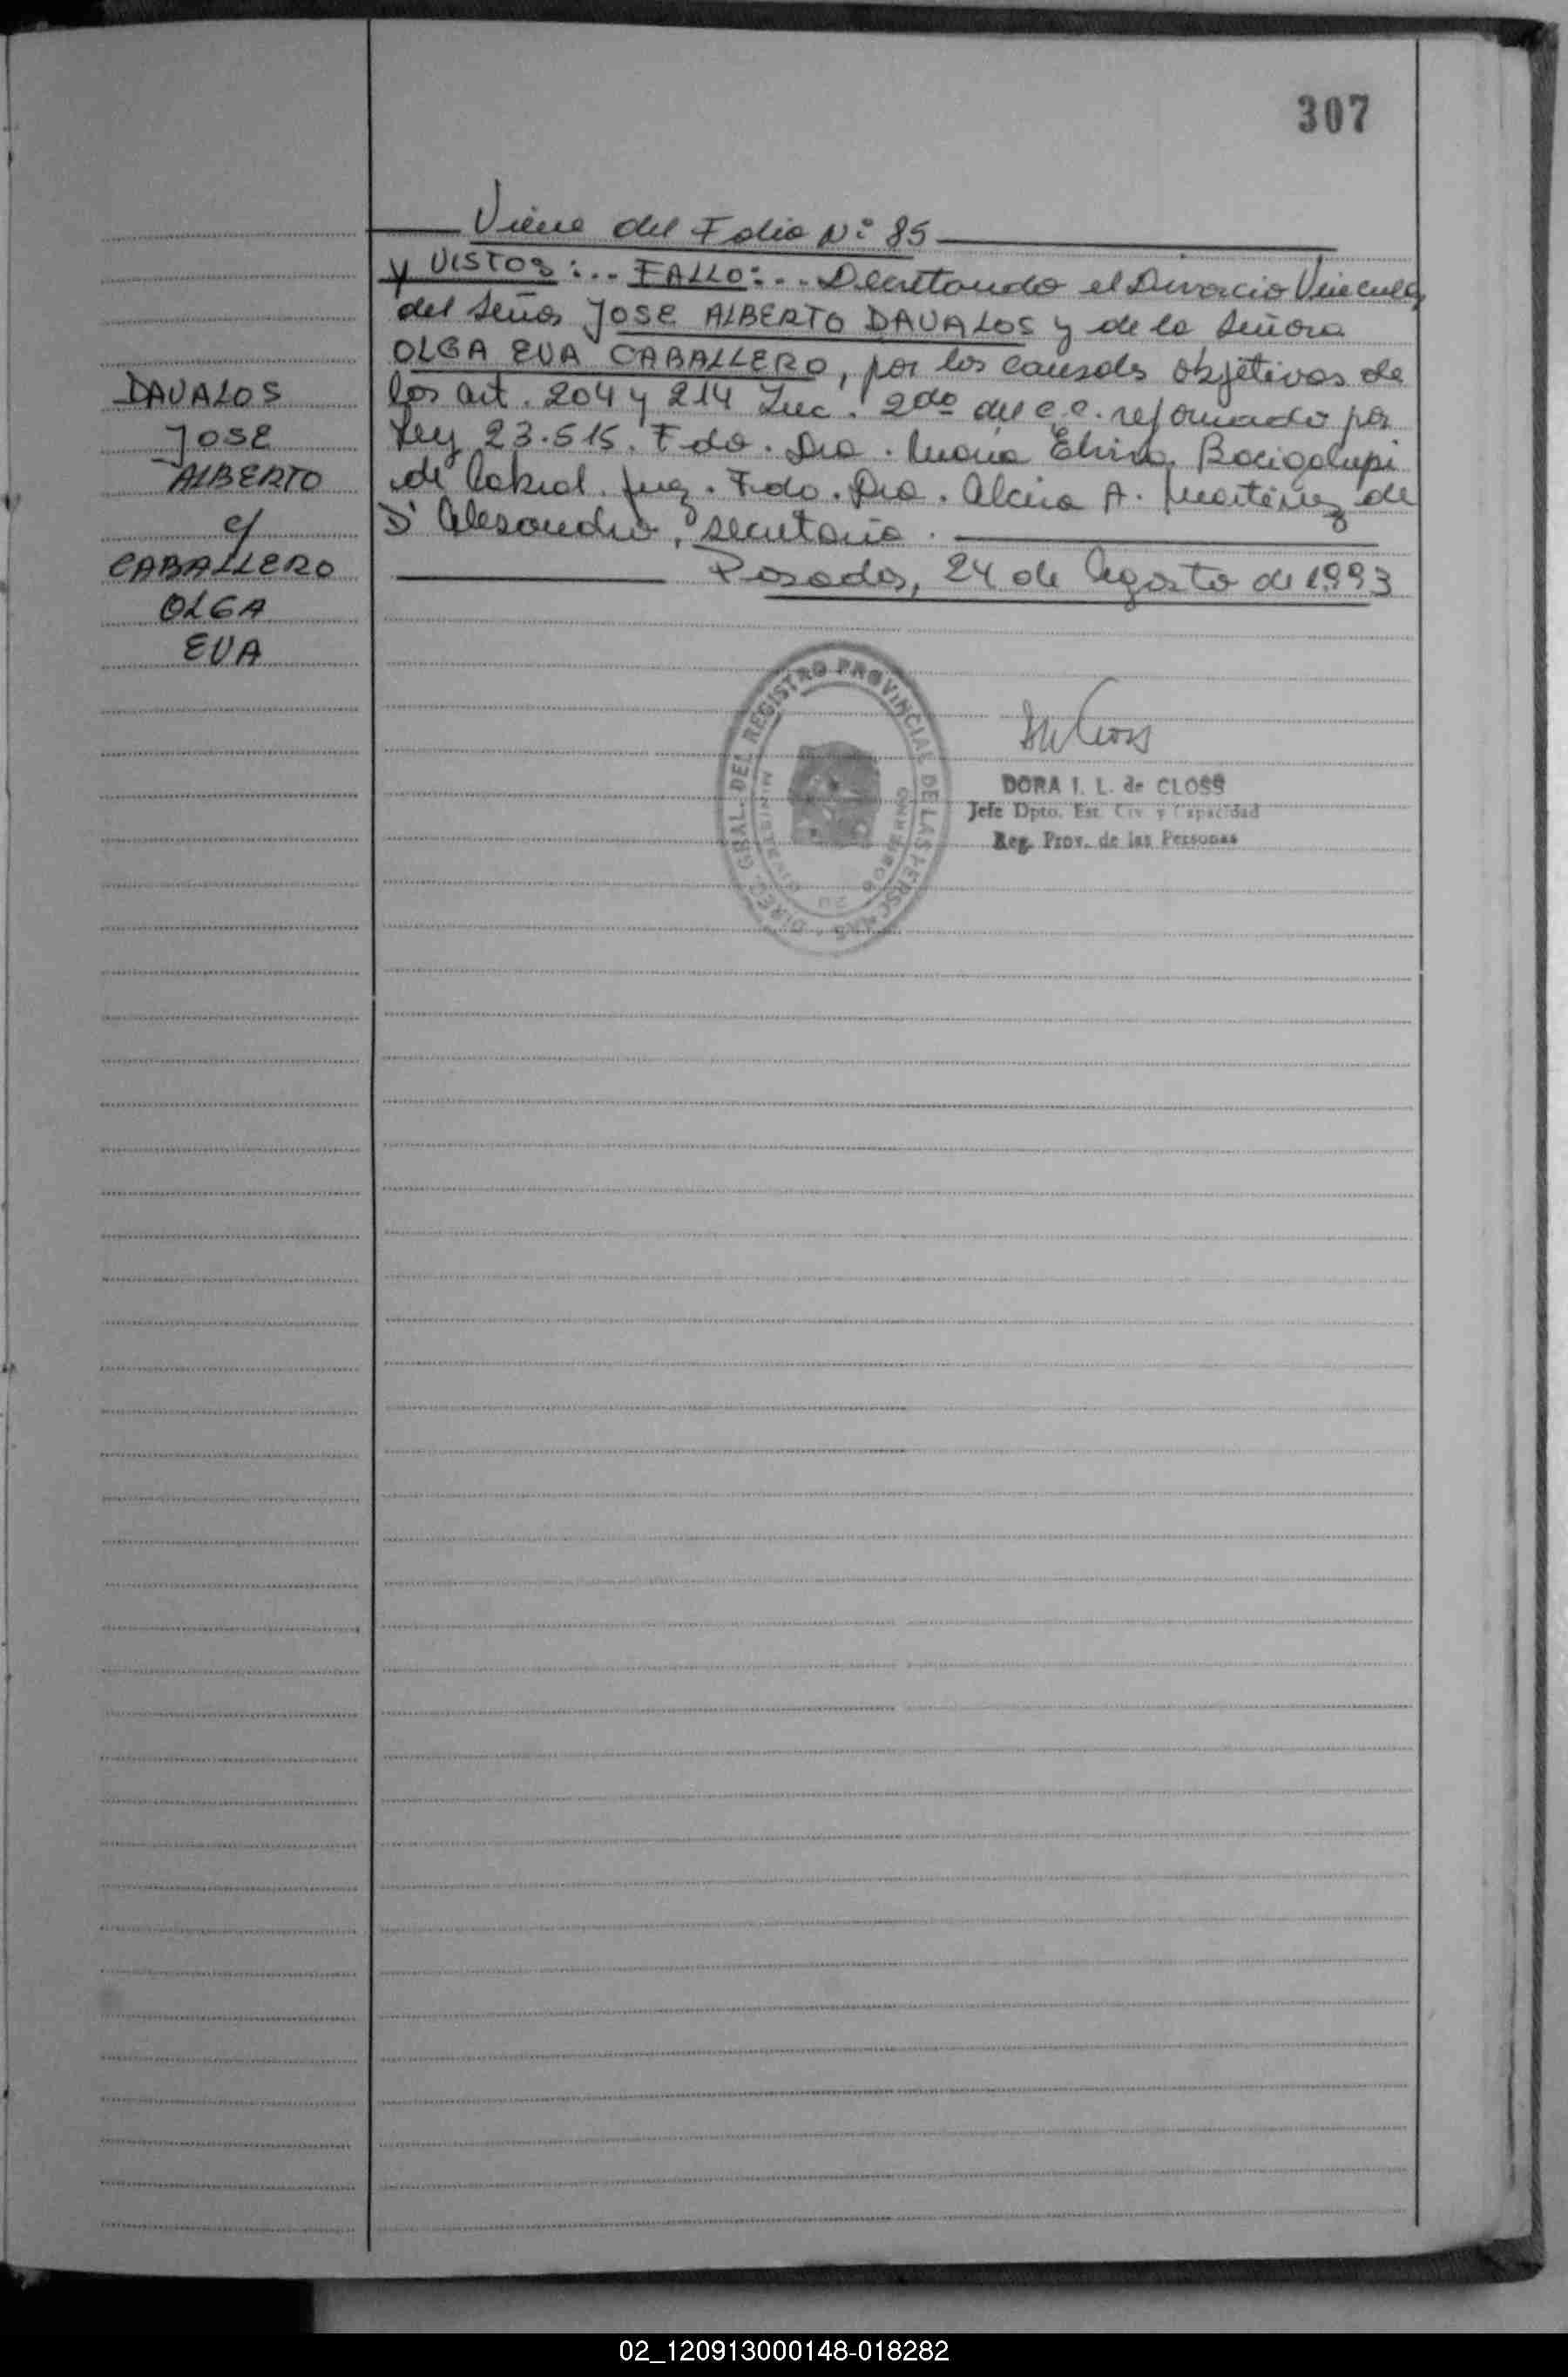 307
Viene del Folio Nº 85
Y VISTOS:... FALLO:... Decretando el Divorcio Vincular
del Señor JOSE ALBERTO DAVALOS y de la Señora
OLGA EVA CABALLERO, por las causales objetivas de
los art. 204 y 214 Inc. 2do del c.c. reformado por
Ley 23.515. Fdo. Dra. María Elvira Bacigalupi
de Cabral. Juez. Fdo. Dra. Alcira A. Martínez de
D'Alesandro, secretaria.
Posadas, 24 de Agosto de 1993
DAVALOS
JOSE
ALBERTO
c/
CABALLERO
OLGA
EVA
DIREC. GRAL. DEL REGISTRO PROVINCIAL DE LAS PERSONAS
MINISTERIO DE GOBIERNO
DORA I. L. de CLOSS
Jefe Dpto. Est. Civ. y Capacidad
Reg. Prov. de las Personas
02_120913000148-018282